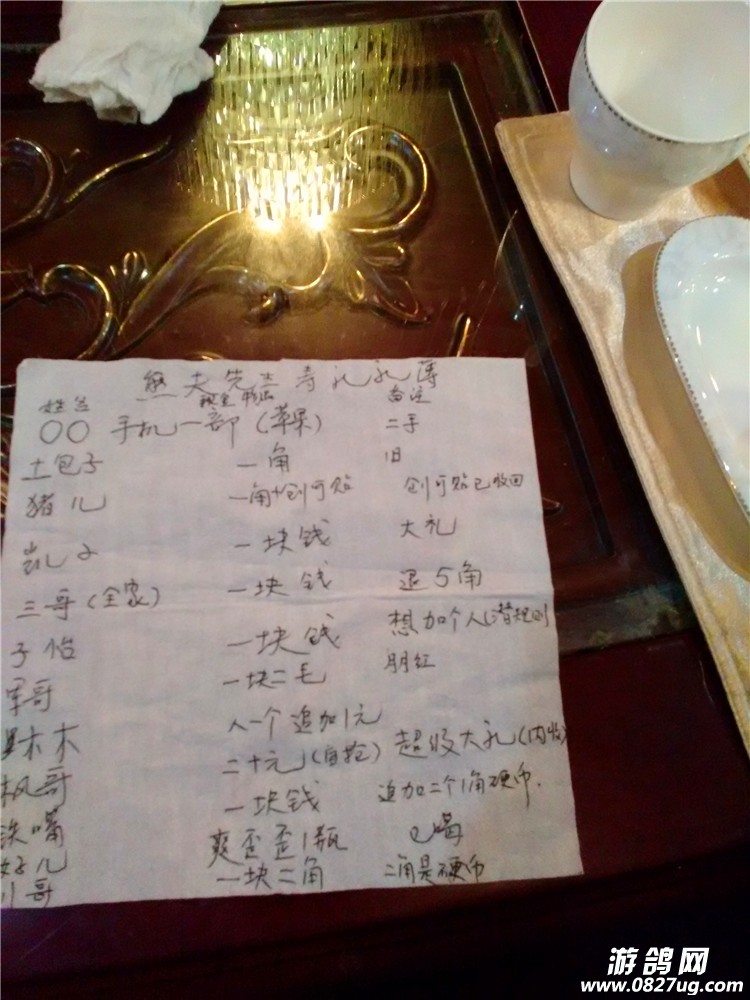 熊夫先生寿礼礼薄
姓名 现金 物品 备注
〇〇 手机一部(苹果) 二手
土包子 一角 旧
猪儿 一角+创可贴 创可贴已收回
凯子 一块钱 大礼
三哥(全家) 一块钱 退5角
子怡 一块钱 想加个人(潜规则
军哥 一块二毛 朋红
木木 人一个 追加1元
枫哥 二十元(自抢) 超级大礼(内收)
铁嘴 一块钱 追加二个1角硬币.
好儿 爽歪歪1瓶 喝
川哥 一块二角 二角是硬币
游鸽网
www.0827ug.com